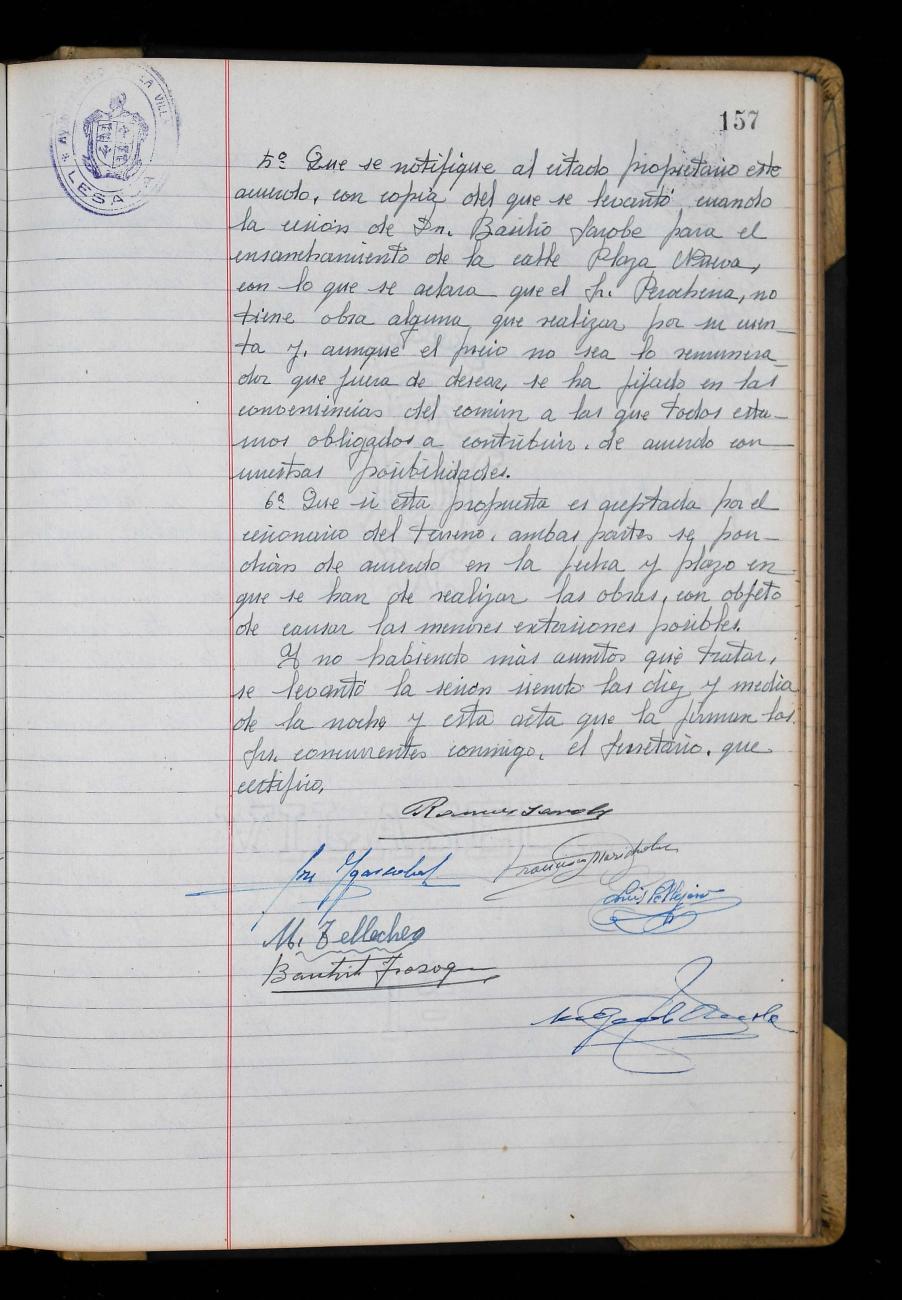 AYUNTAMIENTO DE LA VILLA
* LESACA
157
5º Que se notifique al citado propietario este
acuerdo, con copia del que se levantó cuando
la cesión de Dn. Basilio Jarobe para el
ensanchamiento de la calle Plaza Nueva,
con lo que se aclara que el Sr. Perochena, no
tiene obra alguna que realizar por su cuen-
ta y, aunque el precio no sea lo remunera
dor que fuera de desear, se ha fijado en las
conveniencias del común a las que todos esta-
mos obligados a contribuir, de acuerdo con
nuestras posibilidades.
6º Que si esta propuesta es aceptada por el
cesionario del terreno, ambas partes se pon-
drían de acuerdo en la fecha y plazo en
que se han de realizar las obras, con objeto
de causar las menores extorsiones posibles.
Y no habiendo más asuntos que tratar,
se levantó la sesión siendo las diez y media
de la noche y esta acta que la firman los
Srs. concurrentes conmigo, el Secretario, que
certifico.
Ramon
Francisco
Luis
M. Tellechea